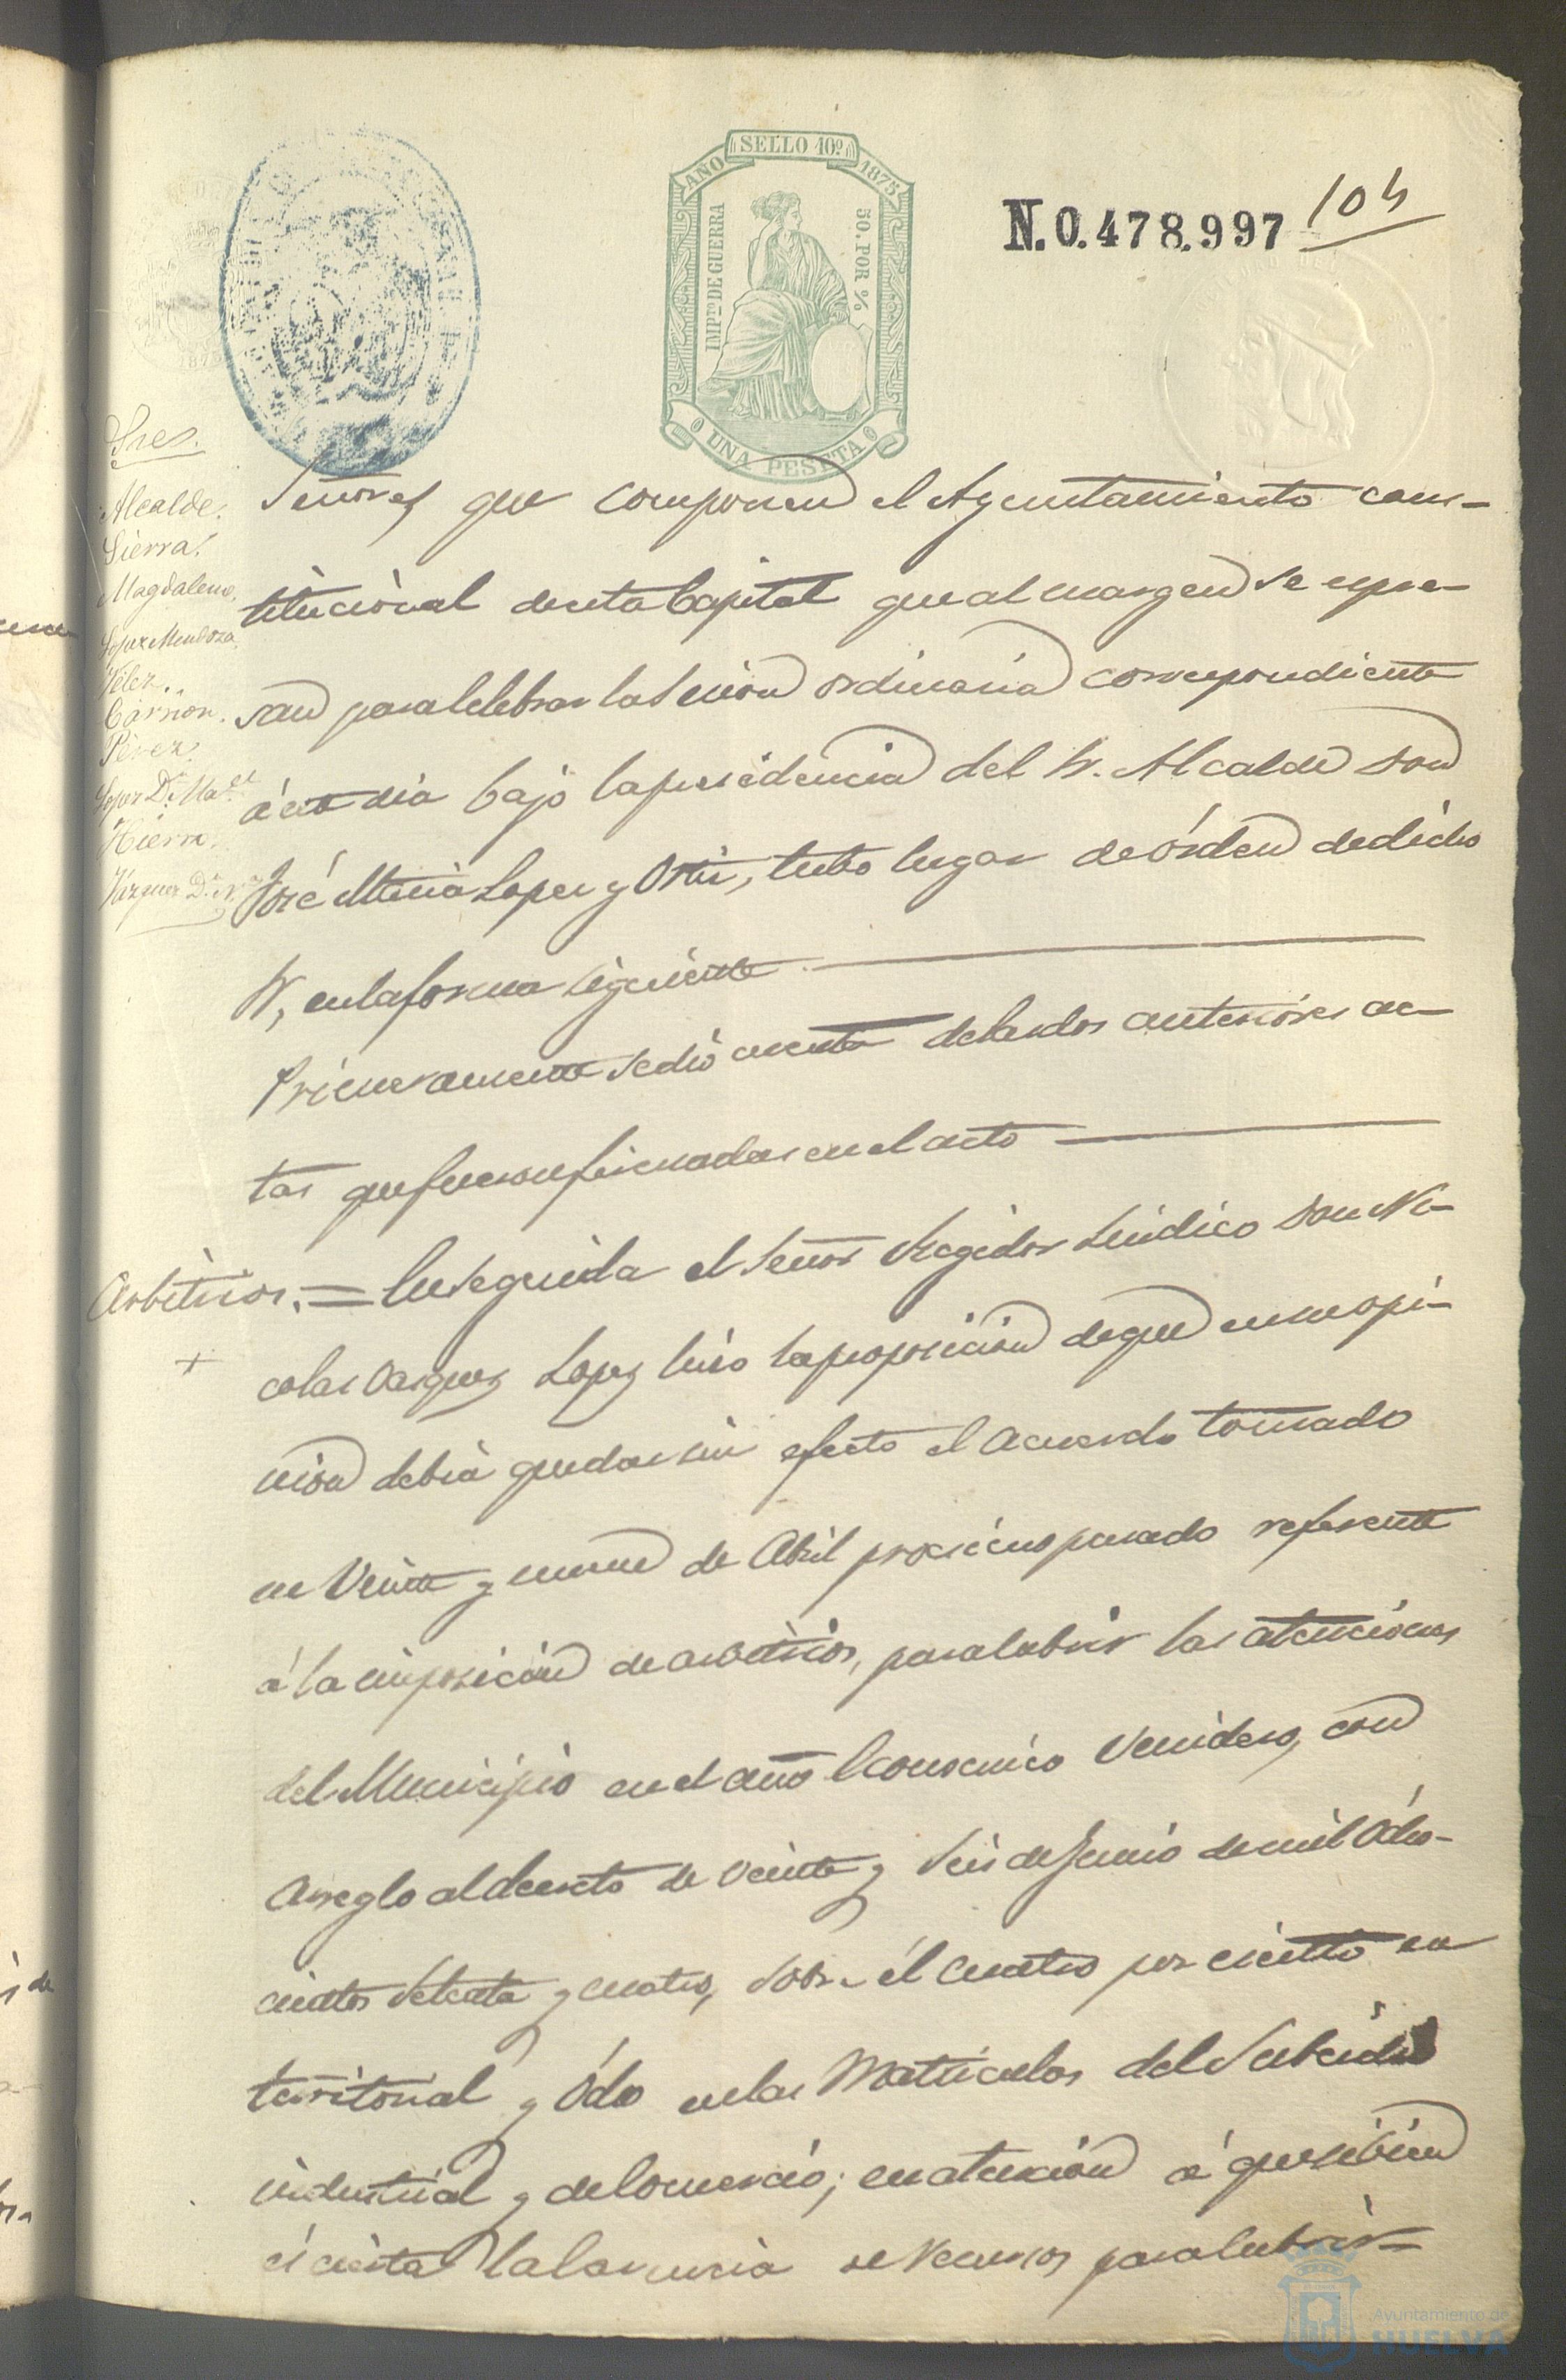 SELLO 10º
AÑO 1875
IMPTO DE GUERRA
50. POR %
UNA PESETA
N. 0.478.997
104
Sres.
Alcalde.
Sierra.
Magdaleno.
Lopez Mendoza.
Velez.
Carrion.
Perez.
Lopez Dn. Mael
Hierro.
Vazquez Dn. N.
Señores que componen el Ayuntamiento cons-
titucional de esta Capital que al margen se espre-
san para celebrar la Sesion ordinaria correspondiente
á este dia bajo la presidencia del Sr. Alcalde Don
José Maria Lopez y Ortiz, tubo lugar de órden de dicho
Sr, en la forma siguiente
Primeramente se dió cuenta de las dos anteriores ac-
tas que fueron firmadas en el acto
Arbitrios. = En seguida el Señor Regidor Sindico Don Ni-
colas Vazquez Lopez hizo la proposicion de que en su opi-
nion debia quedar sin efecto el acuerdo tomado
en Veinte y nueve de Abril procsimo pasado referente
á la imposicion de arbitrios, para cubrir las atenciones
del Municipio en el año Economico Venidero, con
arreglo al decreto de veinte y Seis de Junio de mil Ocho-
cientos Setenta y cuatro, sobre él cuatro por ciento en
territorial y Ocho en las Matriculas del Subsidio
industrial y de Comercio; en atencion á que si bien
es cierta la carencia de Recursos para cubrir
Ayuntamiento de
HUELVA